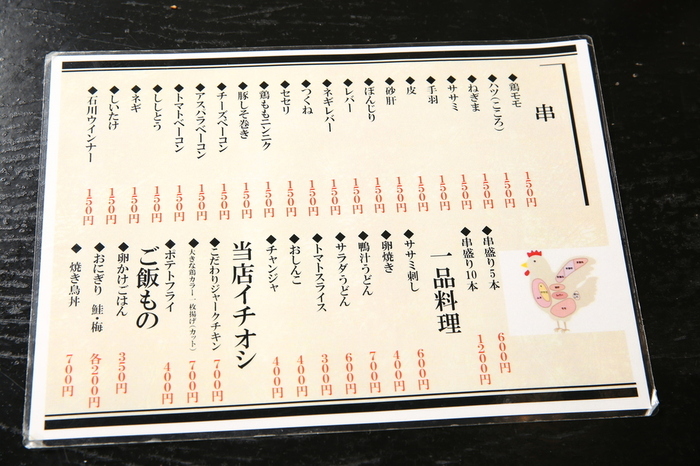 串
◆鶏モモ 150円
◆ハツ(こころ) 150円
◆ねぎま 150円
◆ササミ 150円
◆手羽 150円
◆皮 150円
◆砂肝 150円
◆ぼんじり 150円
◆レバー 150円
◆ネギレバー 150円
◆つくね 150円
◆セセリ 150円
◆鶏ももニンニク 150円
◆豚しそ巻き 150円
◆チーズベーコン 150円
◆アスパラベーコン 150円
◆トマトベーコン 150円
◆ししとう 150円
◆ネギ 150円
◆しいたけ 150円
◆石川ウインナー 150円
◆串盛り5本 600円
◆串盛り10本 1200円
一品料理
◆ササミ刺し 600円
◆卵焼き 400円
◆鴨汁うどん 700円
◆サラダうどん 600円
◆トマトスライス 300円
◆おしんこ 400円
◆チャンジャ 400円
当店イチオシ
◆こだわりジャークチキン 700円
◆大きな鶏カラー一枚揚げ(カット) 700円
◆ポテトフライ 400円
ご飯もの
◆卵かけごはん 350円
◆おにぎり 鮭・梅 各200円
◆焼き鳥丼 700円